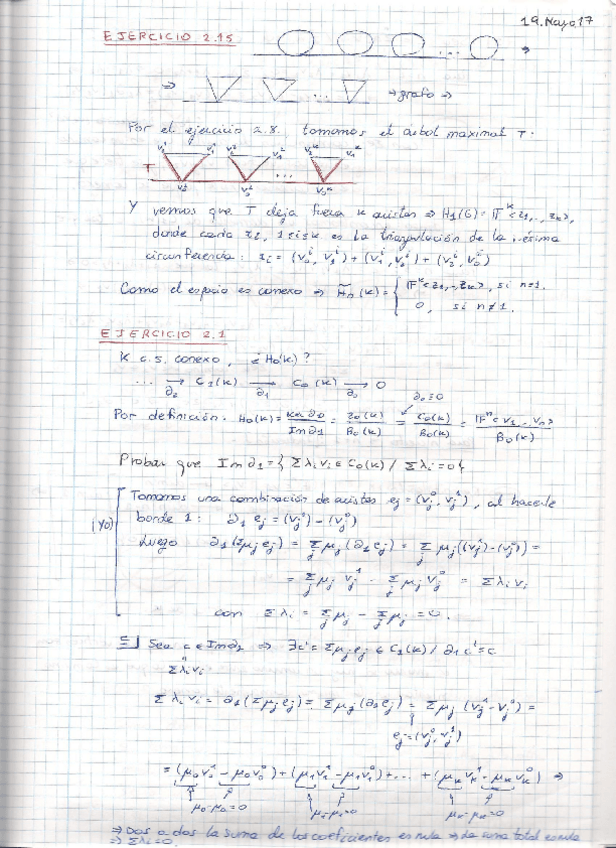 19. Mayo, 17
EJERCICIO 2.15
...
⇒ ... → grafo ⇒
Por el ejercicio 2.8. tomamos el árbol maximal T.
T
Y vemos que T deja fuera k aristas ⇒ H₁(G) = 𝔽ᵏ<z₁, .., z_k>,
donde cada z_i, 1≤i≤k es la triangulación de la i-ésima
circunferencia: z_i = (v₀ⁱ, v₁ⁱ) + (v₁ⁱ, v₂ⁱ) + (v₂ⁱ, v₀ⁱ)
Como el espacio es conexo ⇒ H̃ₙ(K) = { 𝔽ᵏ<z₁, .., z_k>, si n=1.
0, si n≠1.
EJERCICIO 2.1
K c.s. conexo, ¿ H₀(K) ?
... →∂₂ C₁(K) →∂₁ C₀(K) →∂₀ 0
∂₀≡0
Por definición. H₀(K) = Ker ∂₀ / Im ∂₁ = Z₀(K) / B₀(K) = C₀(K) / B₀(K) = 𝔽ⁿ<v₁ ... vₙ> / B₀(K)
Probar que Im ∂₁ = { Σ λᵢ vᵢ ∈ C₀(K) / Σ λᵢ = 0 }
Tomamos una combinación de aristas e_j = (v_j⁰, v_j¹), al hacerle
(Yo) borde 1: ∂₁ e_j = (v_j¹) - (v_j⁰)
Luego ∂₁(Σ μ_j e_j) = Σ_j μ_j (∂₁ e_j) = Σ_j μ_j ((v_j¹) - (v_j⁰)) =
= Σ_j μ_j v_j¹ - Σ_j μ_j v_j⁰ = Σ λᵢ vᵢ
con Σ λᵢ = Σ_j μ_j - Σ_j μ_j = 0.
⊆] Sea c ∈ Im ∂₁ ⇒ ∃ c' = Σ μ_j e_j ∈ C₁(K) / ∂₁ c' = c.
Σ λᵢ vᵢ
Σ λᵢ vᵢ = ∂₁(Σ μ_j e_j) = Σ μ_j (∂₁ e_j) = Σ μ_j (v_j¹ - v_j⁰) =
e_j = (v_j⁰, v_j¹)
= (μ₀v₀¹ - μ₀v₀⁰) + (μ₁v₁¹ - μ₁v₁⁰) + ... + (μ_k v_k¹ - μ_k v_k⁰) ⇒
μ₀ - μ₀ = 0 μ₁ - μ₁ = 0 μ_k - μ_k = 0
⇒ Dos a dos la suma de los coeficientes es nula ⇒ la suma total es nula
⇒ Σ λᵢ = 0.